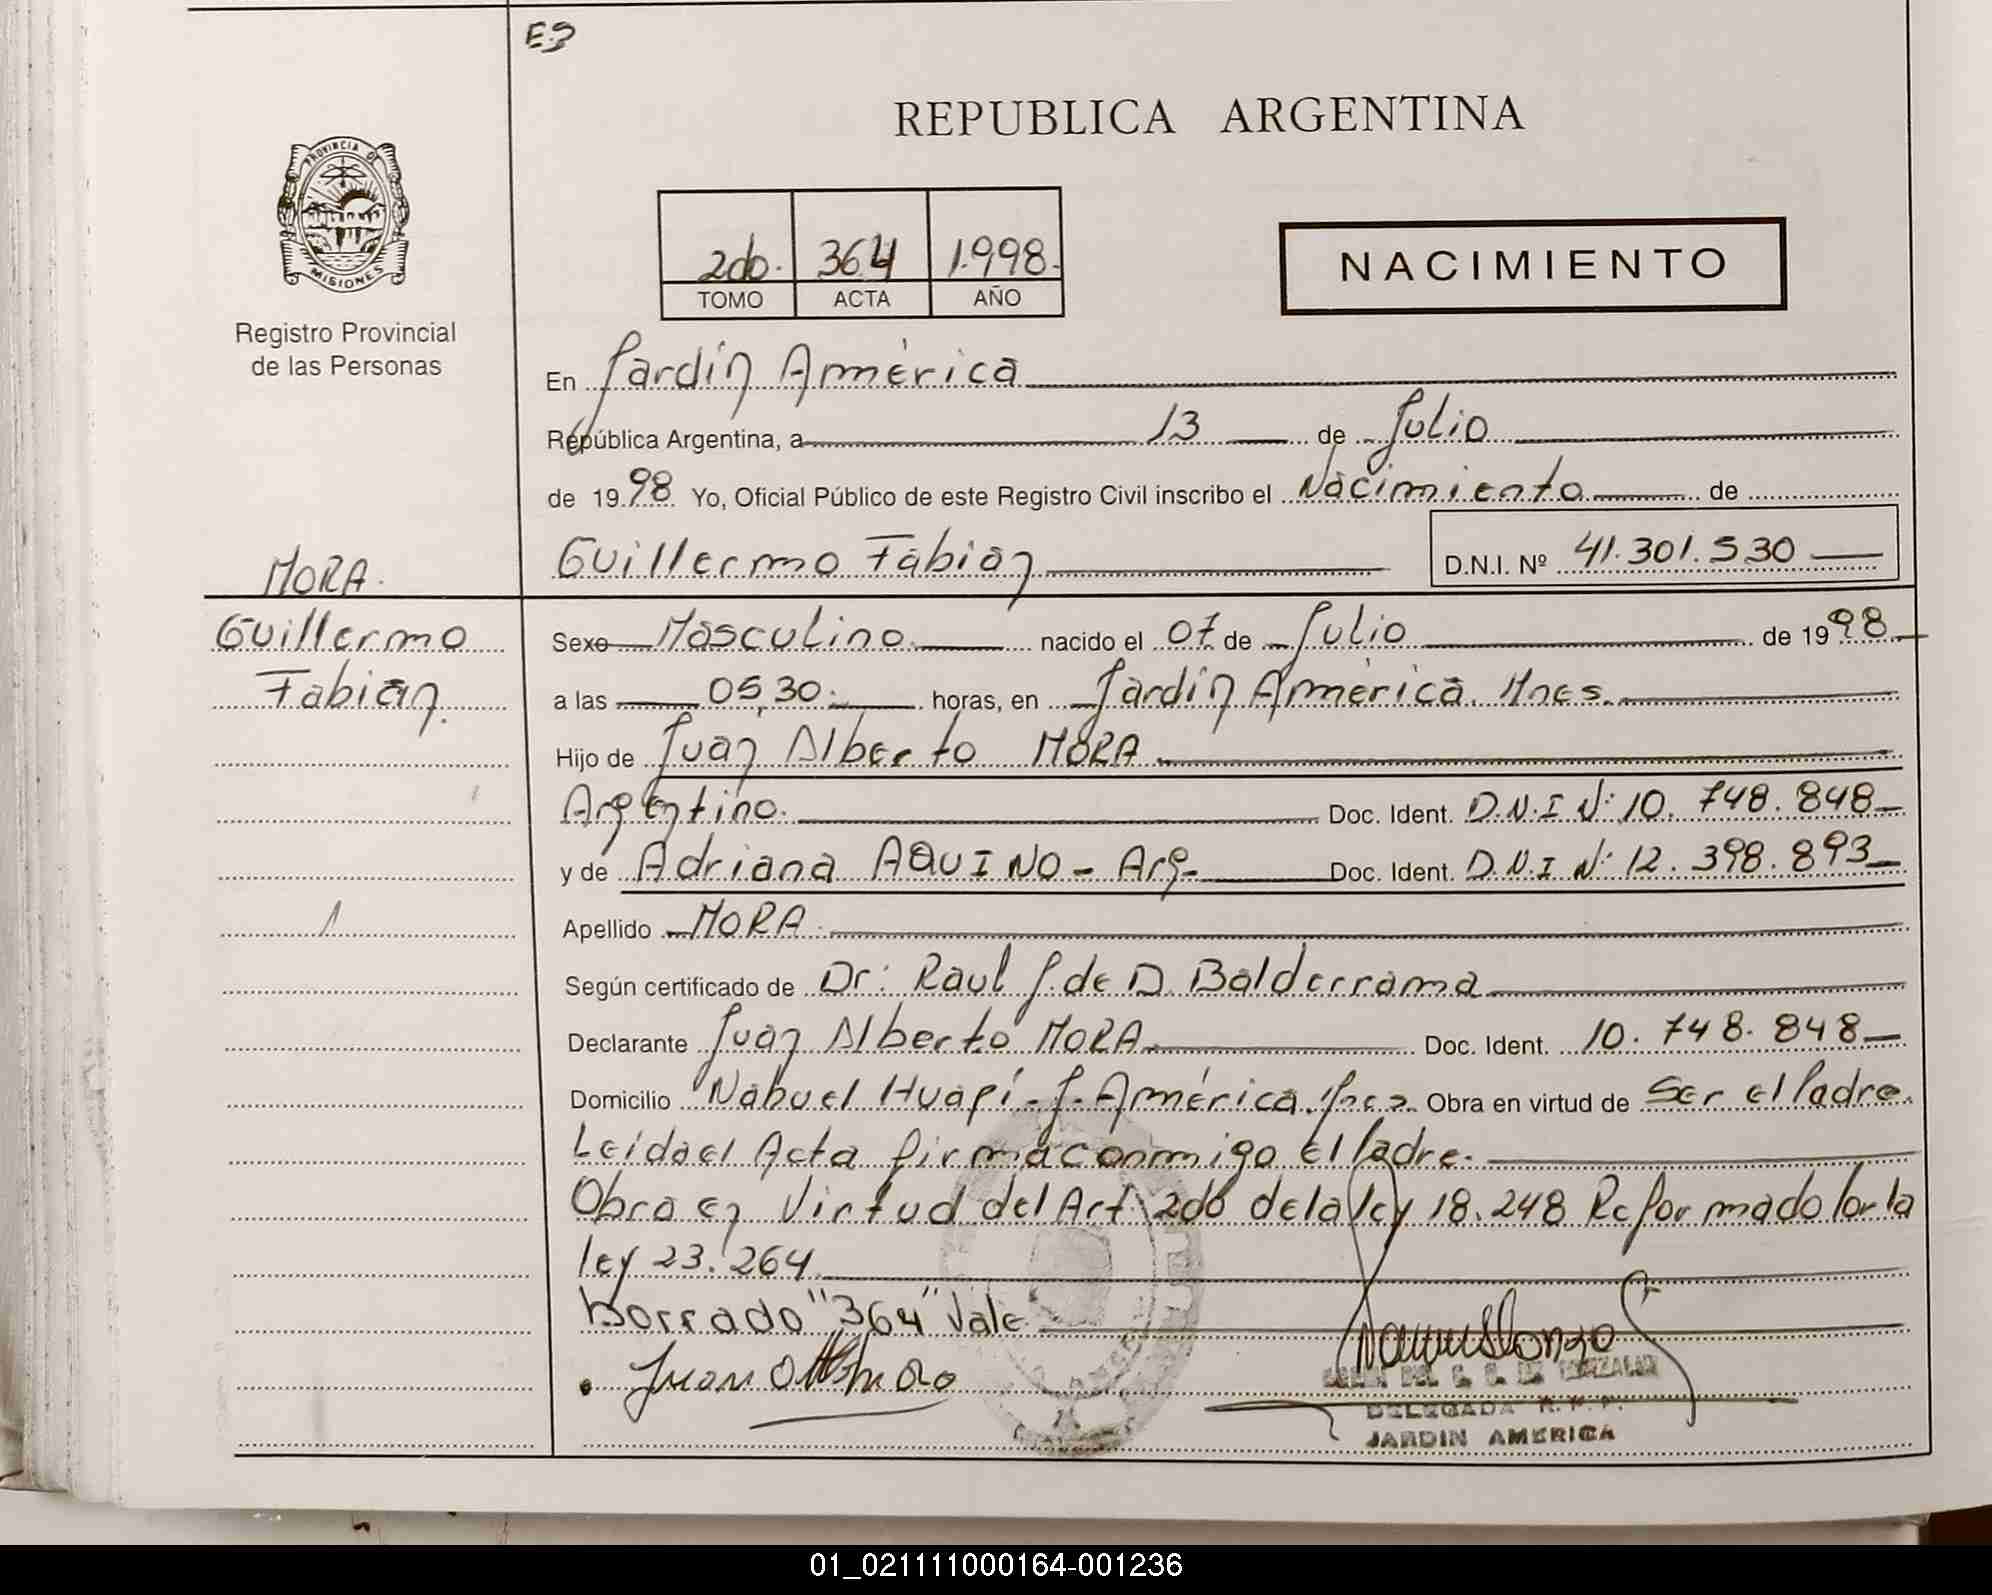 E3
REPUBLICA ARGENTINA
PROVINCIA DE
MISIONES
Registro Provincial
de las Personas
2do. 364 1.998.
TOMO ACTA AÑO
NACIMIENTO
En Jardín América
República Argentina, a 13 de Julio
de 1998. Yo, Oficial Público de este Registro Civil inscribo el Nacimiento de
Guillermo Fabián D.N.I. Nº 41.301.530
MORA.
Guillermo
Fabián.
Sexo Masculino nacido el 07 de Julio de 1998
a las 05,30. horas, en Jardín América. Mnes.
Hijo de Juan Alberto MORA
Argentino. Doc. Ident. D.N.I Nº 10.748.848
y de Adriana AQUINO - Arg- Doc. Ident. D.N.I Nº 12.398.893
Apellido MORA
Según certificado de Dr: Raul J. de D. Balderrama
Declarante Juan Alberto MORA Doc. Ident. 10.748.848
Domicilio Nahuel Huapí - J. América. Mnes. Obra en virtud de Ser el Padre.
Leída el Acta firma conmigo el Padre.
Obra en Virtud del Art 2do de la ley 18.248 Reformado Por la
ley 23.264
borrado "364" Vale
DELEGADA R. P. P.
JARDIN AMERICA
01_021111000164-001236